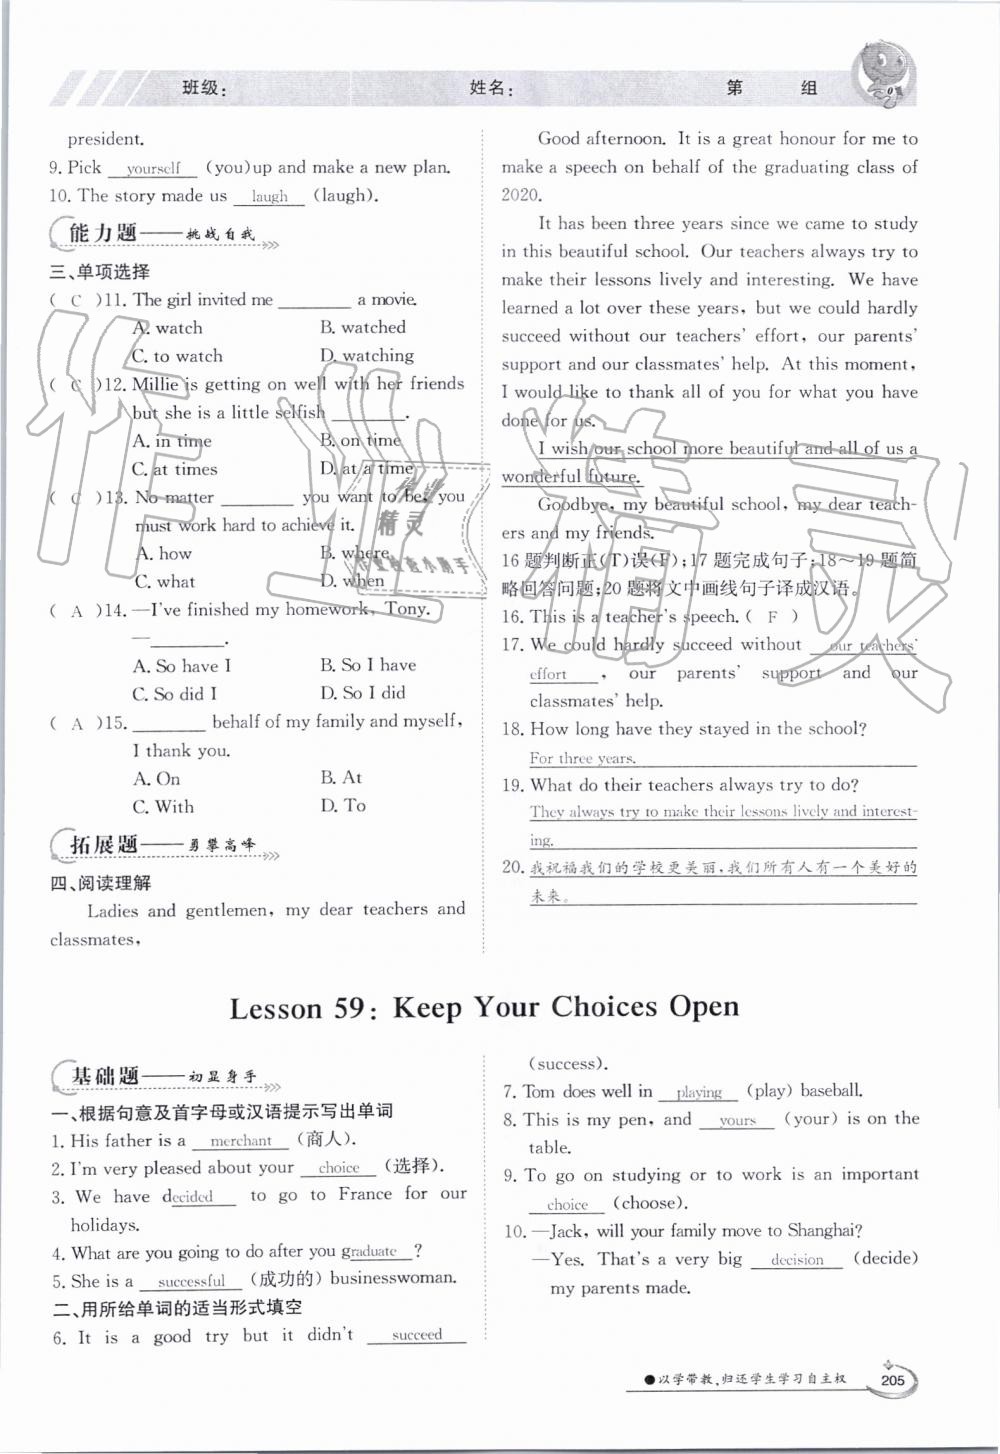 班级：
姓名：
第 组
president.
9. Pick yourself (you)up and make a new plan.
10. The story made us laugh (laugh).
能力题——挑战自我
三、单项选择
( C )11. The girl invited me ________ a movie.
A. watch B. watched
C. to watch D. watching
( C )12. Millie is getting on well with her friends
but she is a little selfish ________.
A. in time B. on time
C. at times D. at a time
( C )13. No matter ________ you want to be, you
must work hard to achieve it.
A. how B. where
C. what D. when
( A )14. —I've finished my homework, Tony.
— ________.
A. So have I B. So I have
C. So did I D. So I did
( A )15. ________ behalf of my family and myself,
I thank you.
A. On B. At
C. With D. To
拓展题——勇攀高峰
四、阅读理解
Ladies and gentlemen, my dear teachers and
classmates,
Good afternoon. It is a great honour for me to
make a speech on behalf of the graduating class of
2020.
It has been three years since we came to study
in this beautiful school. Our teachers always try to
make their lessons lively and interesting. We have
learned a lot over these years, but we could hardly
succeed without our teachers' effort, our parents'
support and our classmates' help. At this moment,
I would like to thank all of you for what you have
done for us.
I wish our school more beautiful and all of us a
wonderful future.
Goodbye, my beautiful school, my dear teach-
ers and my friends.
16题判断正(T)误(F)；17题完成句子；18～19题简
略回答问题；20题将文中画线句子译成汉语。
16. This is a teacher's speech. ( F )
17. We could hardly succeed without our teachers'
effort, our parents' support and our
classmates' help.
18. How long have they stayed in the school?
For three years.
19. What do their teachers always try to do?
They always try to make their lessons lively and interest-
ing.
20. 我祝福我们的学校更美丽，我们所有人有一个美好的
未来。
Lesson 59: Keep Your Choices Open
基础题——初显身手
一、根据句意及首字母或汉语提示写出单词
1. His father is a merchant (商人).
2. I'm very pleased about your choice (选择).
3. We have decided to go to France for our
holidays.
4. What are you going to do after you graduate?
5. She is a successful (成功的) businesswoman.
二、用所给单词的适当形式填空
6. It is a good try but it didn't succeed
(success).
7. Tom does well in playing (play) baseball.
8. This is my pen, and yours (your) is on the
table.
9. To go on studying or to work is an important
choice (choose).
10. —Jack, will your family move to Shanghai?
—Yes. That's a very big decision (decide)
my parents made.
●以学带教，归还学生学习自主权
205
作业精灵